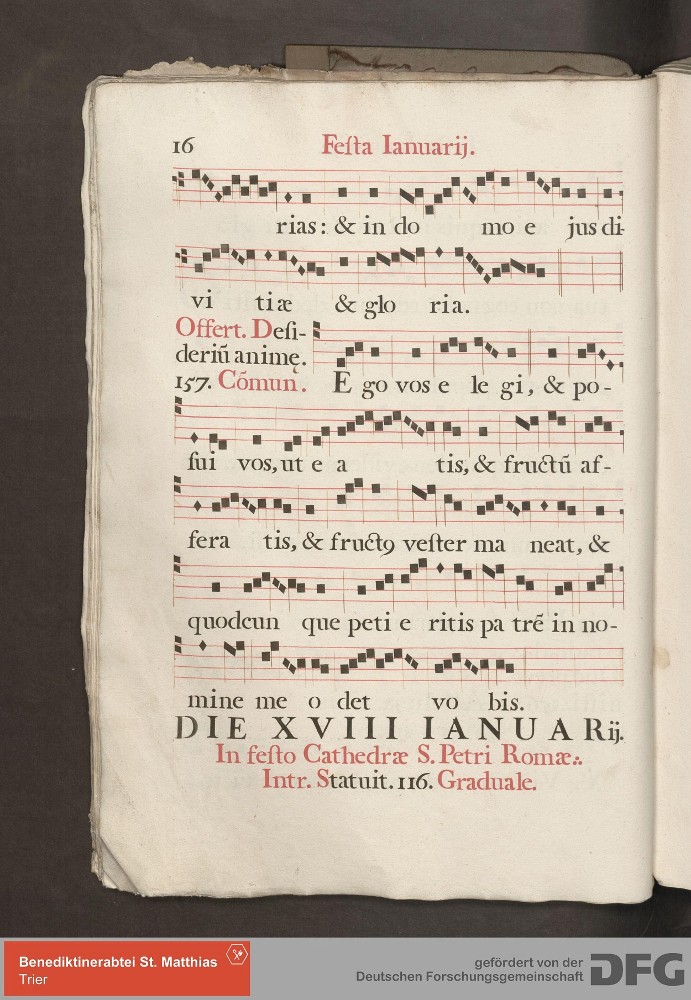 16 Feſta Ianuarij.
rias: & in do mo e jus di-
vi tiæ & glo ria.
Offert. Deſi-
deriũ animę.
157. Cõmun. E go vos e le gi, & po-
ſui vos, ut e a tis, & fructũ af-
fera tis, & fructꝰ veſter ma neat, &
quodcun que peti e ritis pa trẽ in no-
mine me o det vo bis.
DIE XVIII IANUARij.
In feſto Cathedræ S. Petri Romæ.
Intr. Statuit. 116. Graduale.
Benediktinerabtei St. Matthias
Trier
gefördert von der
Deutschen Forschungsgemeinschaft DFG